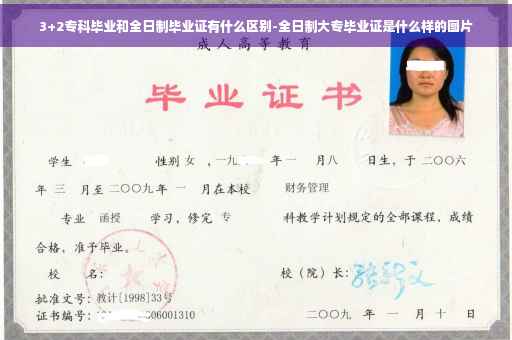 3+2专科毕业和全日制毕业证有什么区别-全日制大专毕业证是什么样的图片
成人高等教育
毕业证书
学生 性别 女 ，一九 年 一 月八 日生，于 二〇〇六
年 三 月至 二〇〇九 年 一 月在本校 财务管理
专业 函授 学习，修完 专 科教学计划规定的全部课程，成绩
合格，准予毕业。
校 名： 校（院）长：
批准文号：教计[1998]33号
证书编号： 06001310 二〇〇九 年 一 月 十 日